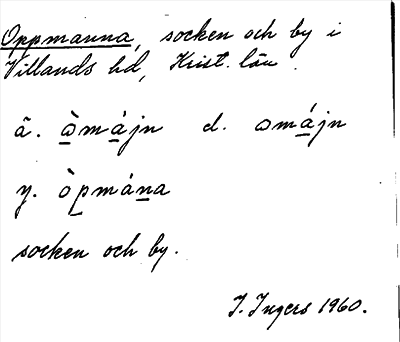 Oppmanna, socken och by i
Villands hd, Krist. län.
ä. ò̲má̲jn d. omá̲jn
y. òp̲mán̲a
socken och by.
I. Ingers 1960.